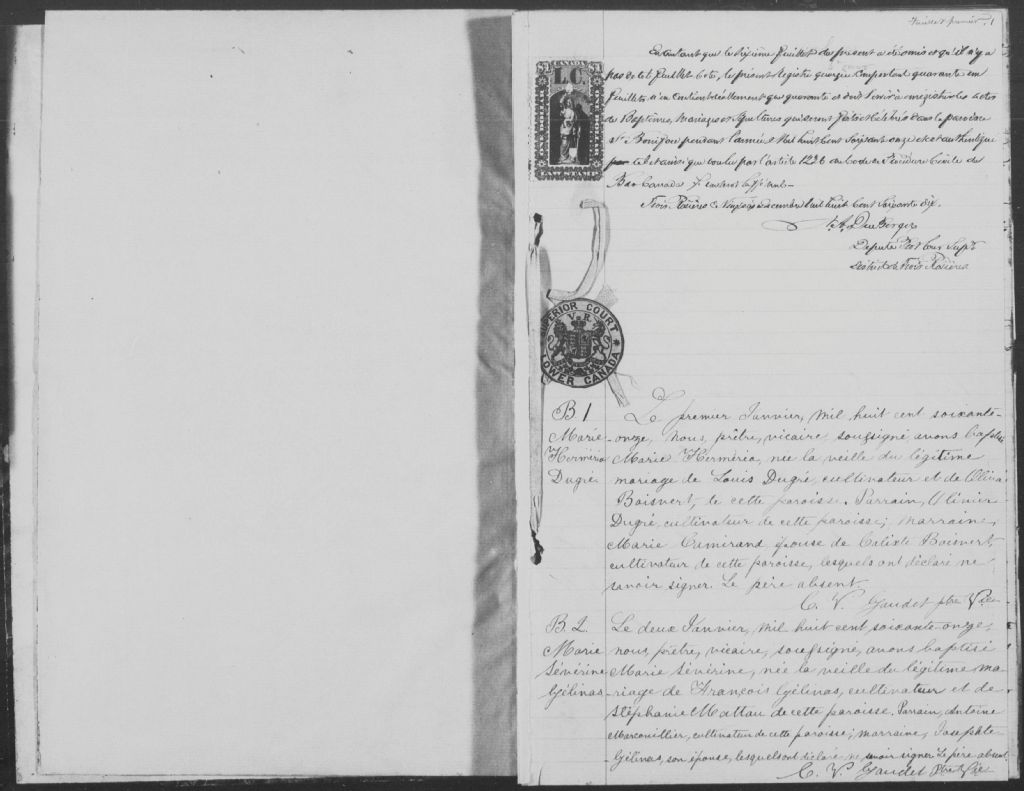 Feuillet premier. 1
En contant que le sixième feuillet du présent a été omis et qu'il n'y a
pas de tel feuillet coté, le présent registre quoique comportant quarante un
feuillets n'en contient réellement que quarante et doit servir à enregistrer les actes
de Baptêmes, Mariages et Sépultures qui seront faits et célébrés dans la paroisse
St Boniface pendant l'année Mil huit cent soixante onze et est authentiqué
tel et ainsi que voulu par l'article 1236 du code de Procédure Civile du
Bas Canada
Trois Rivières ce Décembre Mil huit cent soixante dix.
Député
District de Trois Rivières
CANADA
$1 L.C. $1
ONE DOLLAR
SUPERIOR COURT
V. R.
LOWER CANADA
B 1
Marie
Herméria
Dugré
Le premier Janvier, mil huit cent soixante-
onze, nous, prêtre, vicaire soussigné avons baptisé
Marie Herméria, née la veille du légitime
mariage de Louis Dugré, cultivateur et de Olivia
Boisvert, de cette paroisse. Parrain, Olivier
Dugré, cultivateur de cette paroisse; marraine,
Marie Camirand épouse de Calixte Boisvert,
cultivateur de cette paroisse, lesquels ont déclaré ne
savoir signer. Le père absent.
C. V. Gaudet ptre Vic
B. 2.
Marie
Sévérine
Gélinas
Le deux Janvier, mil huit cent soixante-onze,
nous, prêtre, vicaire, soussigné, avons baptisé
Marie Sévérine, née la veille du légitime ma-
riage de François Gélinas, cultivateur et de
Stéphanie Mattau de cette paroisse. Parrain, Antoine
Marcouillier, cultivateur de cette paroisse; marraine, Josephte
Gélinas, son épouse, lesquels ont déclaré ne savoir signer. Le père absent.
C. V. Gaudet Ptre Vic